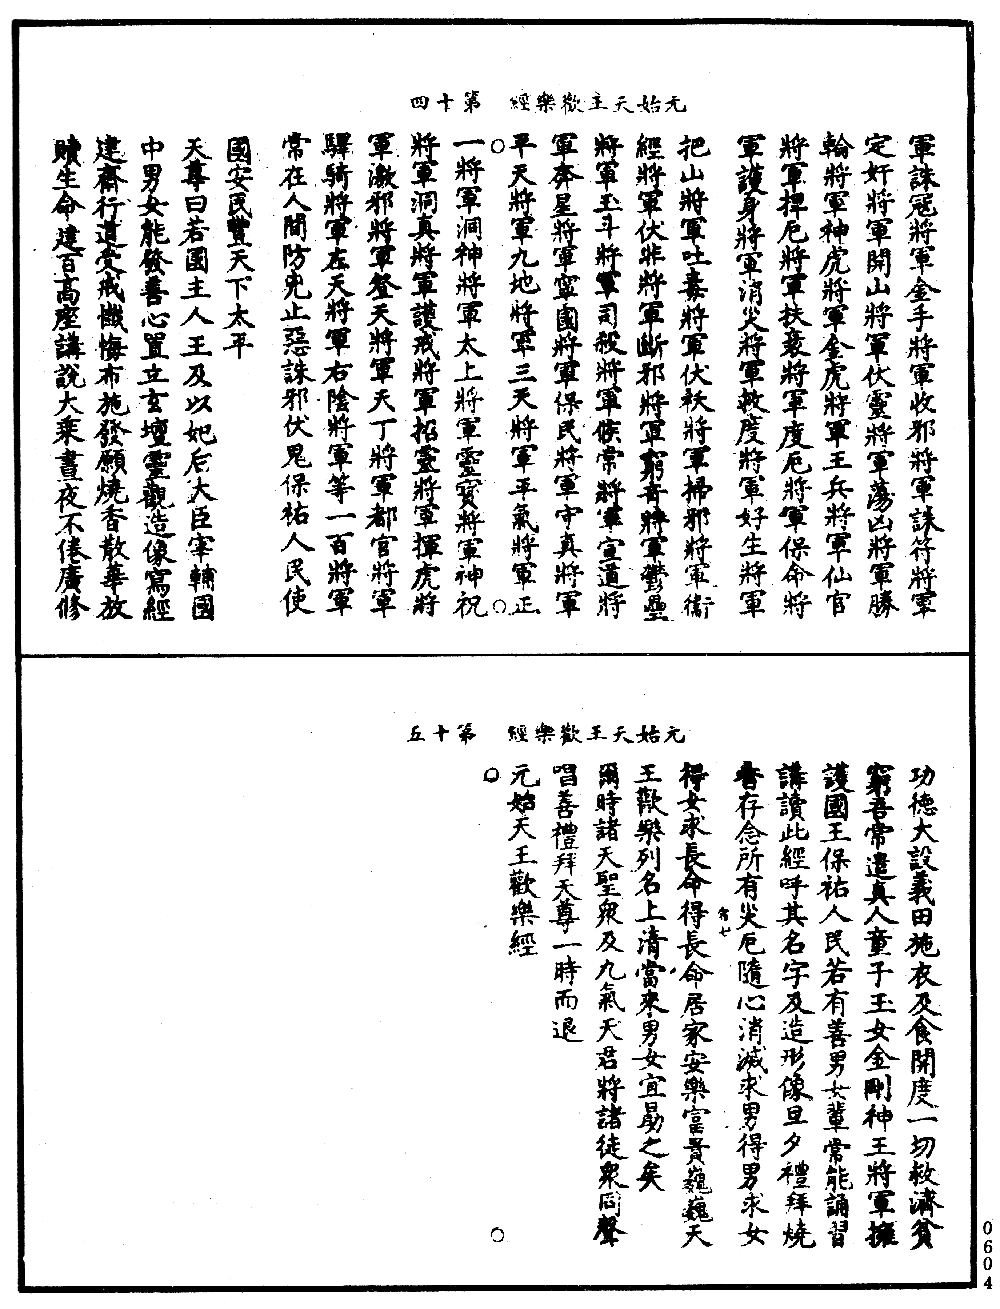 元始天王歡樂經　第十四
軍誅寇將軍金手將軍收邪將軍誅符將軍
定奸將軍開山將軍伏靈將軍蕩凶將軍勝
輪將軍神虎將軍金虎將軍王兵將軍仙官
將軍捍厄將軍扶衰將軍度厄將軍保命將
軍護身將軍消災將軍救度將軍好生將軍
把山將軍吐毒將軍伏袄將軍掃邪將軍衞
經將軍伏非將軍斷邪將軍窮奇將軍鬱壘
將軍玉斗將軍司殺將軍候常將軍宣道將
軍奔星將軍寧國將軍保民將軍守真將軍
平天將軍九地將軍三天將軍平氣將軍正
一將軍洞神將軍太上將軍靈寶將軍神祝
將軍洞真將軍護戒將軍招靈將軍揮虎將
軍激邪將軍登天將軍天丁將軍都官將軍
驛騎將軍左天將軍右陰將軍等一百將軍
常在人間防兇止惡誅邪伏鬼保祐人民使
國安民豐天下太平
天尊曰若國主人王及以妃后大臣宰輔國
中男女能發善心置立玄壇靈觀造像寫經
建齋行道受戒懺悔布施發願燒香散華放
贖生命建百高座講說大乘晝夜不倦廣修
元始天王歡樂經　第十五
功德大設義田施衣及食開度一切救濟貧
窮吾常遣真人童子玉女金剛神王將軍擁
護國王保祐人民若有善男女輩常能誦習
講讀此經呼其名字及造形像旦夕禮拜燒
香存念所有災厄隨心消滅求男得男求女
得女求長命得長命居家安樂富貴巍巍天
王歡樂列名上清當來男女宜勗之矣
爾時諸天聖衆及九氣天君將諸徒衆同聲
唱善禮拜天尊一時而退
元始天王歡樂經
0604